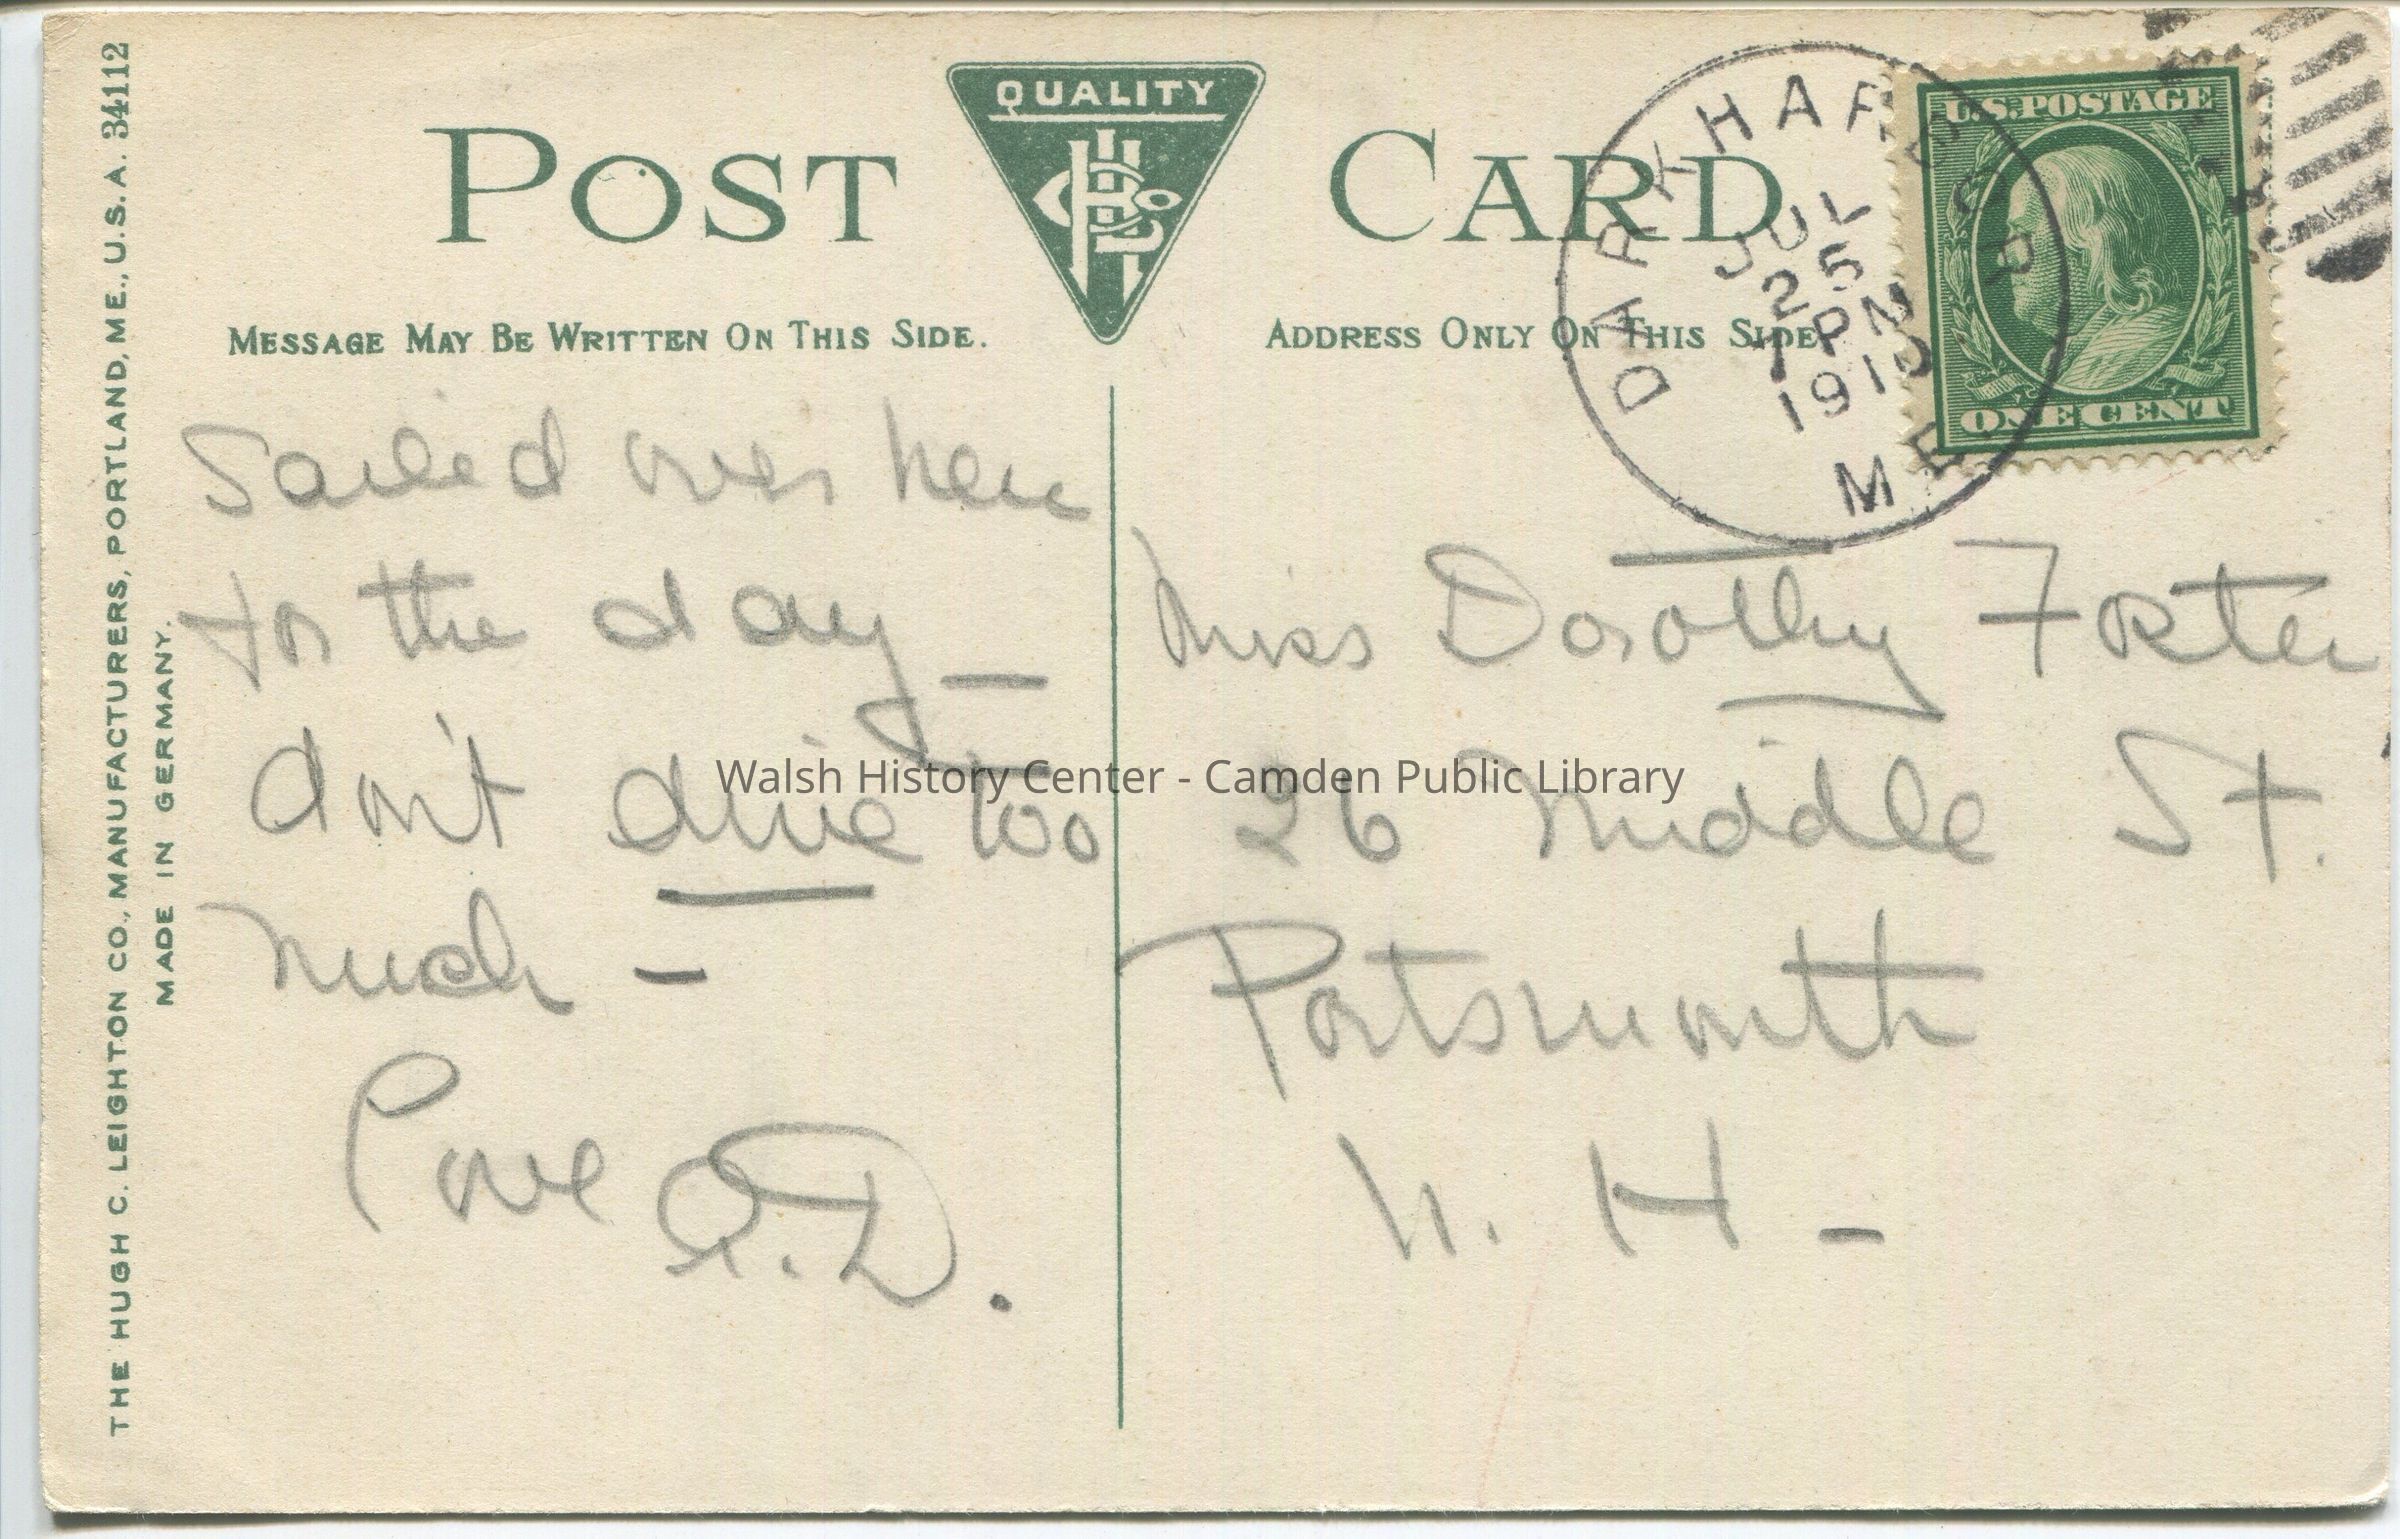 THE HUGH C. LEIGHTON CO., MANUFACTURERS, PORTLAND, ME., U.S.A. 34112
MADE IN GERMANY.
POST CARD
QUALITY
MESSAGE MAY BE WRITTEN ON THIS SIDE.
ADDRESS ONLY ON THIS SIDE
DARK HARBOR
JUL
25
7 PM
1910
ME.
U.S. POSTAGE
ONE CENT
Sailed over here
for the day —
don't dive too
much —
Love A.D.
Miss Dorothy Foster
26 Middle St.
Portsmouth
N. H —
Walsh History Center - Camden Public Library